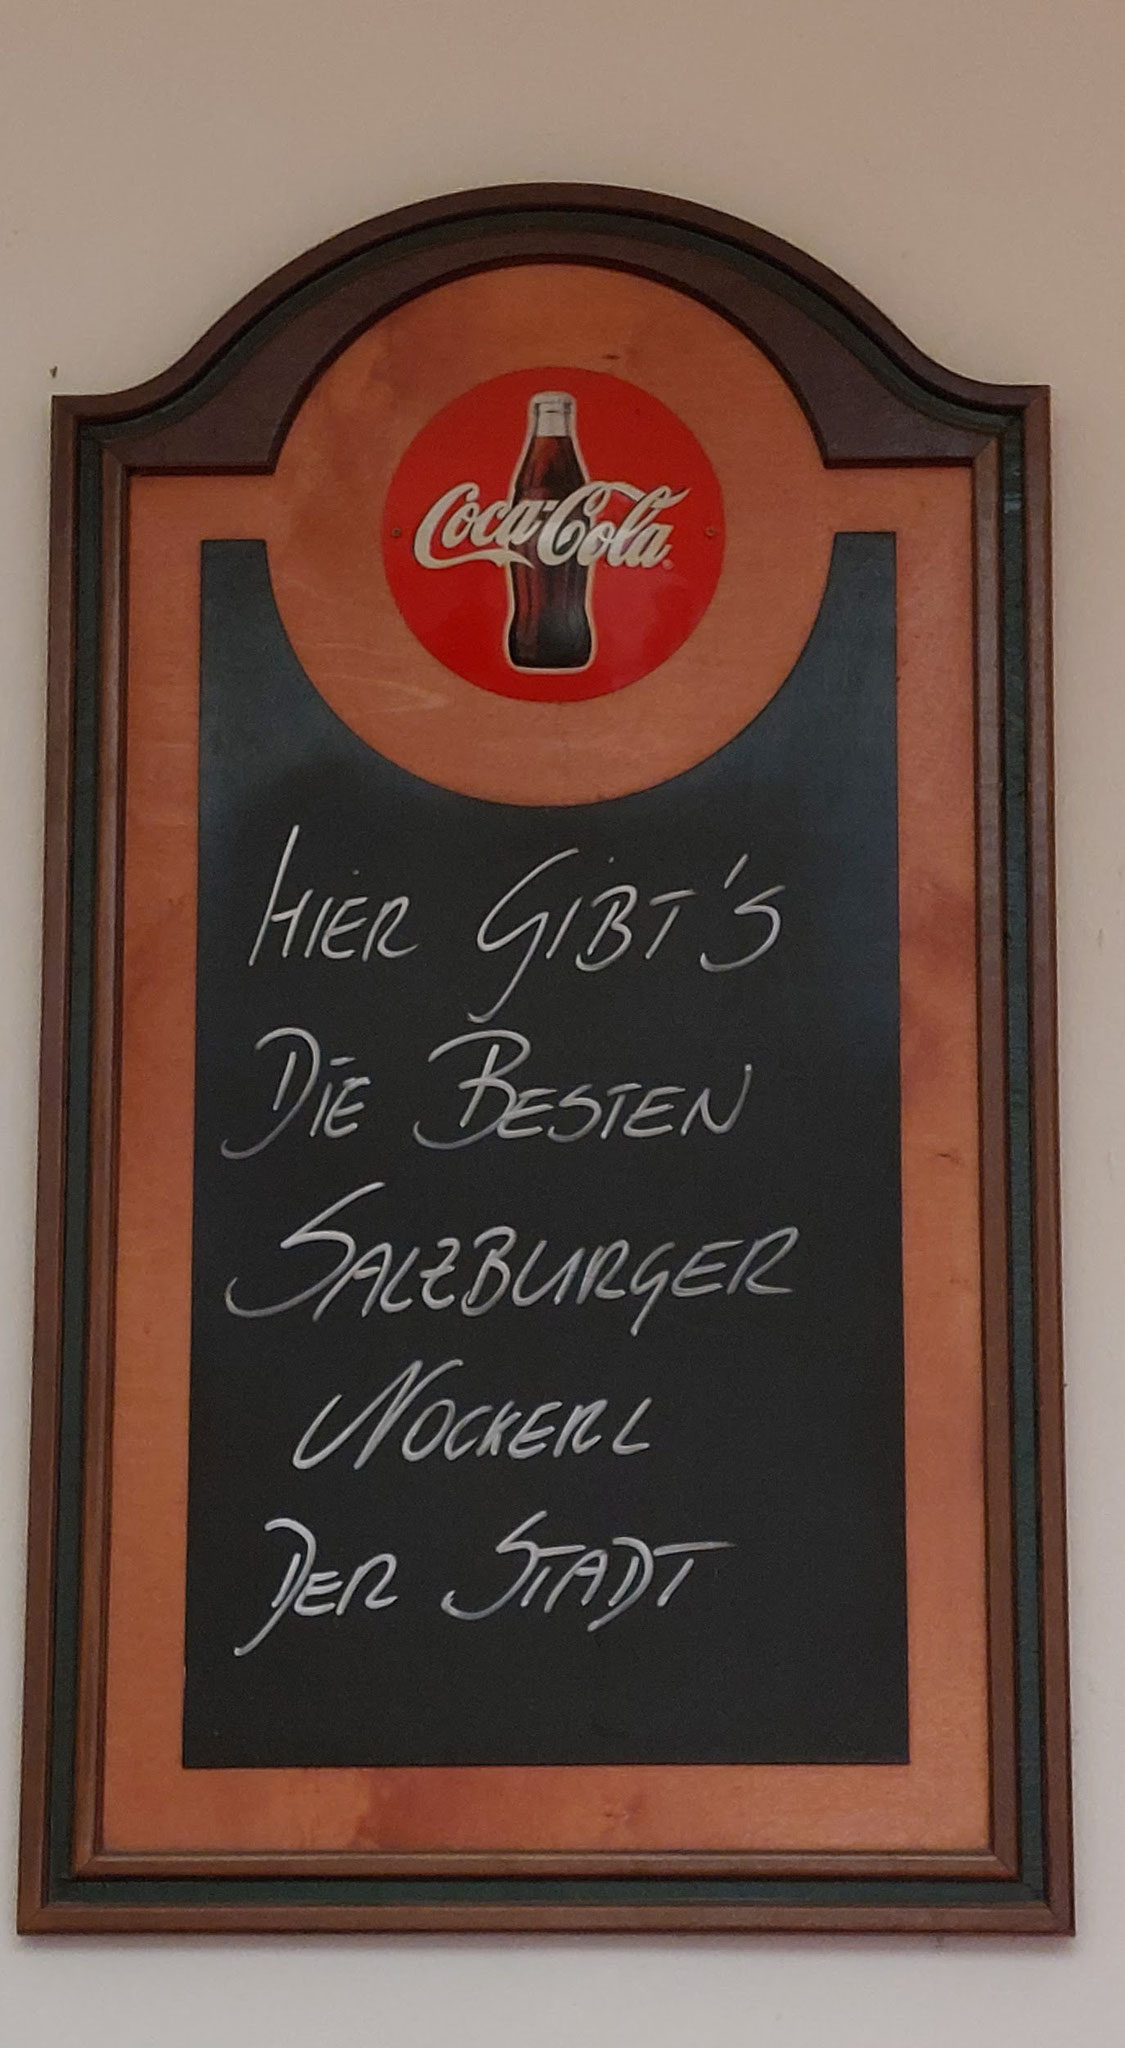 Coca-Cola
HIER GIBT'S
DIE BESTEN
SALZBURGER
NOCKERL
DER STADT